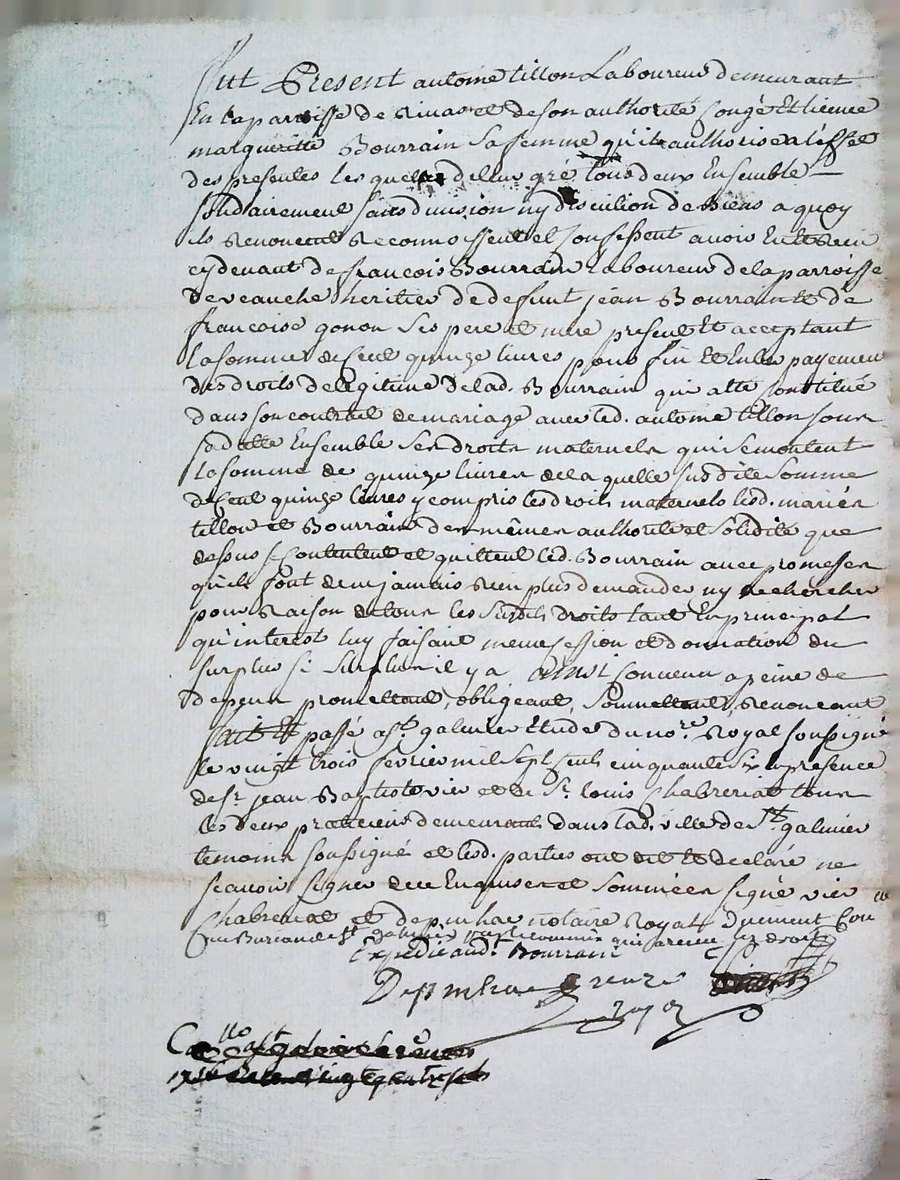 Fut Present antoine tillon Laboureur demeurant
En la parroisse de rivas et de son authorité Congé Et licence
marguéritte Bourrain Sa femme qu'il authorise a l'effet
des presentes les quels de leur gré tous deux Ensemble
solidairement sans division ny discution de Biens a quoy
ils renoncent reconnoissent et Confessent avoir Eu et receu
cydevant de françois Bourrain Laboureur de la parroisse
de veauche heritier de defunt jean Bourrain et de
françoise gonon ses pere et mere present Et acceptant
la somme de Cent quinze livres pour fin Et Entier payement
des droits de legitime de lad. Bourrain qui a été Constitué
dans son contrat de mariage avec led. antoine tillon
Ensemble ses droits maternels qui se montent
la somme de quinze livres de la quelle susdite somme
de Cent quinze livres y compris lesd. droits maternels lesd. mariés
tillon et Bourrain des mêmes authorité et solidité que
dessus se Contentent et quittent led. Bourrain avec promesse
qu'ils font de ne jamais rien plus demander ny rechercher
pour raison de tous les susdits droits tant En principal
qu'interest luy faisant meme cession et donnation du
surplus si surplus il y a ainsi Convenu a peine de
depens promettant, obligeant, Soumettant, renonceant
fait Et passé a St. galmier Etude du nore. Royal soussigné
le vingt trois fevrier mil Sept Cents cinquante Six en presence
de Sr. jean Baptiste vier et de Sr. louis Chabreriat tous
les deux praticiens demeurants dans lad. ville de St. galmier
temoins soussigné et lesd. parties ont dit et declaré ne
scavoir signer de ce Enquises et sommées signé vier
Chabreriat et depinhac notaire Royal duement Con
au Bureau de St galmier par le commis qui a receu les droits
Expedié aud. Bourrain
Depinhac